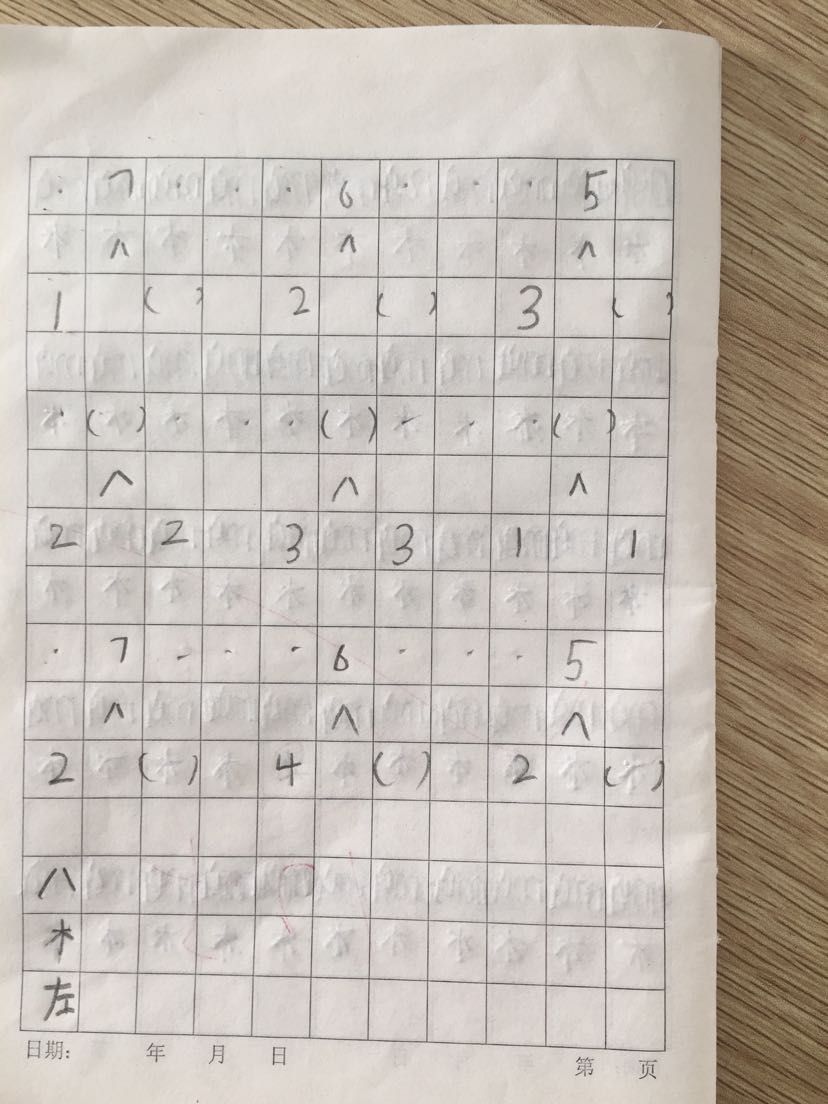 · 7 · · · 6 · · · 5
∧ ∧ ∧
1 ( ) 2 ( ) 3 ( )
· ( ) · · · ( ) · · · ( )
∧ ∧ ∧
2 2 3 3 1 1
· 7 · · · 6 · · · 5
∧ ∧ ∧
2 ( ) 4 ( ) 2 ( )
八
木
左
日期: 年 月 日 第 页